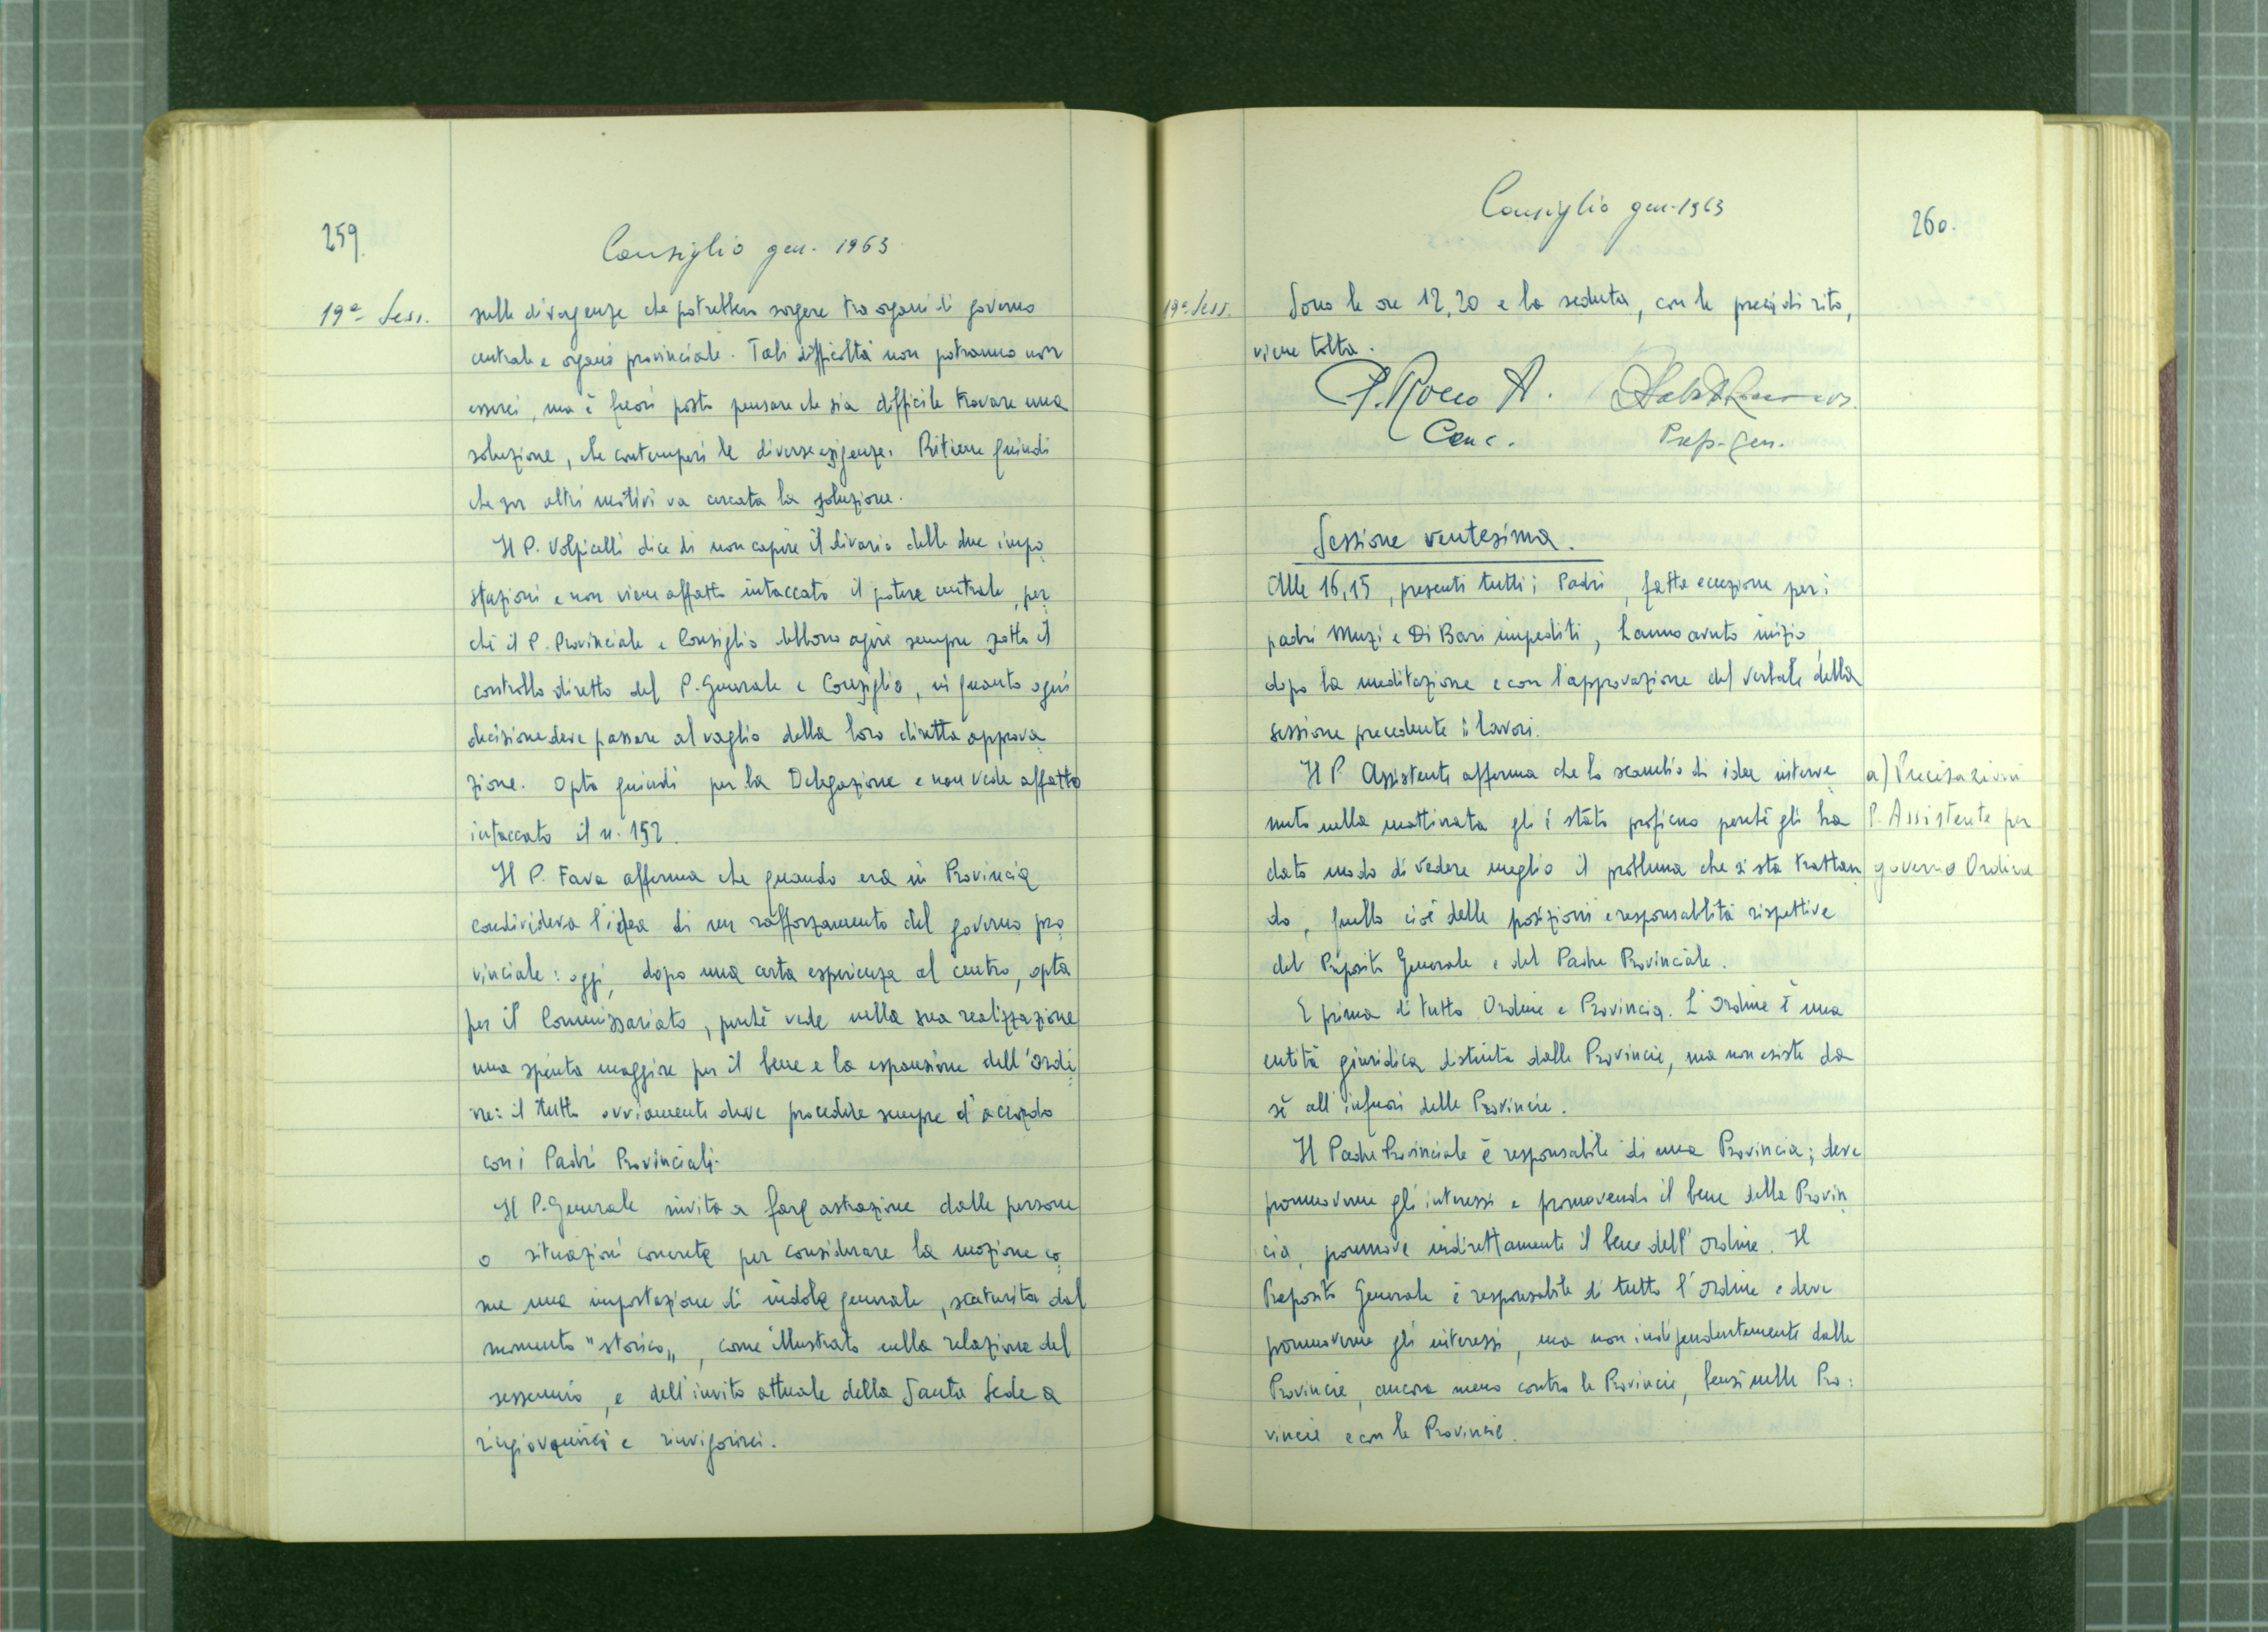 259.
Consiglio gen. 1963
19ª Sess.
sulle divergenze che potrebbero sorgere tra organi di governo
centrale e organi provinciale. Tali difficoltà non potranno non
esserci, ma è fuori posto pensare che sia difficile trovare una
soluzione, che contemperi le diverse esigenze. Ritiene quindi
che per altri motivi va cercata la soluzione.
Il P. Volpicelli dice di non capire il divario delle due impo
stazioni e non viene affatto intaccato il potere centrale, per
chè il P. Provinciale e Consiglio debbono agire sempre sotto il
controllo diretto del P. Generale e Consiglio, in quanto ogni
decisione deve passare al vaglio della loro diretta approva
zione. Opta quindi per la Delegazione e non vede affatto
intaccato il n. 152.
Il P. Fava afferma che quando era in Provincia
condivideva l'idea di un rafforzamento del governo pro
vinciale: oggi, dopo una certa esperienza al centro, opta
per il Commissariato, perchè vede nella sua realizzazione
una spinta maggiore per il bene e la espansione dell'Ordi
ne: il tutto ovviamente deve procedere sempre d'accordo
con i Padri Provinciali.
Il P. Generale invita a fare astrazione dalle persone
o situazioni concrete per considerare la mozione co
me una impostazione di indole generale, scaturita dal
momento "storico", come illustrato nella relazione del
sessennio, e dell'invito attuale della Santa Sede a
ringiovanirci e rinvigorirci.
Consiglio gen. 1963
260.
19ª Sess.
Sono le ore 12,20 e la seduta, con le preci di rito,
viene tolta.
P. Rocco A.
Canc.
Prep. Gen.
Sessione ventesima.
Alle 16,15, presenti tutti i Padri, fatta eccezione per i
padri Muzi e Di Bari impediti, hanno avuto inizio,
dopo la meditazione e con l'approvazione del verbale della
sessione precedente i lavori.
Il P. Assistente afferma che lo scambio di idee interve
nuto nella mattinata gli è stato proficuo perchè gli ha
dato modo di vedere meglio il problema che si sta trattan
do, quello cioè delle posizioni e responsabilità rispettive
del Preposito Generale e del Padre Provinciale.
a) Precisazioni
P. Assistente per
governo Ordine
E prima di tutto Ordine e Provincia. L'Ordine è una
entità giuridica distinta dalle Provincie, ma non esiste da
sè all'infuori delle Provincie.
Il Padre Provinciale è responsabile di una Provincia; deve
promuoverne gli interessi e promovendo il bene della Provin
cia, promuove indirettamente il bene dell'Ordine. Il
Preposito Generale è responsabile di tutto l'Ordine e deve
promuoverne gli interessi, ma non indipendentemente dalle
Provincie, ancora meno contro le Provincie, bensì nelle Pro:
vincie e con le Provincie.